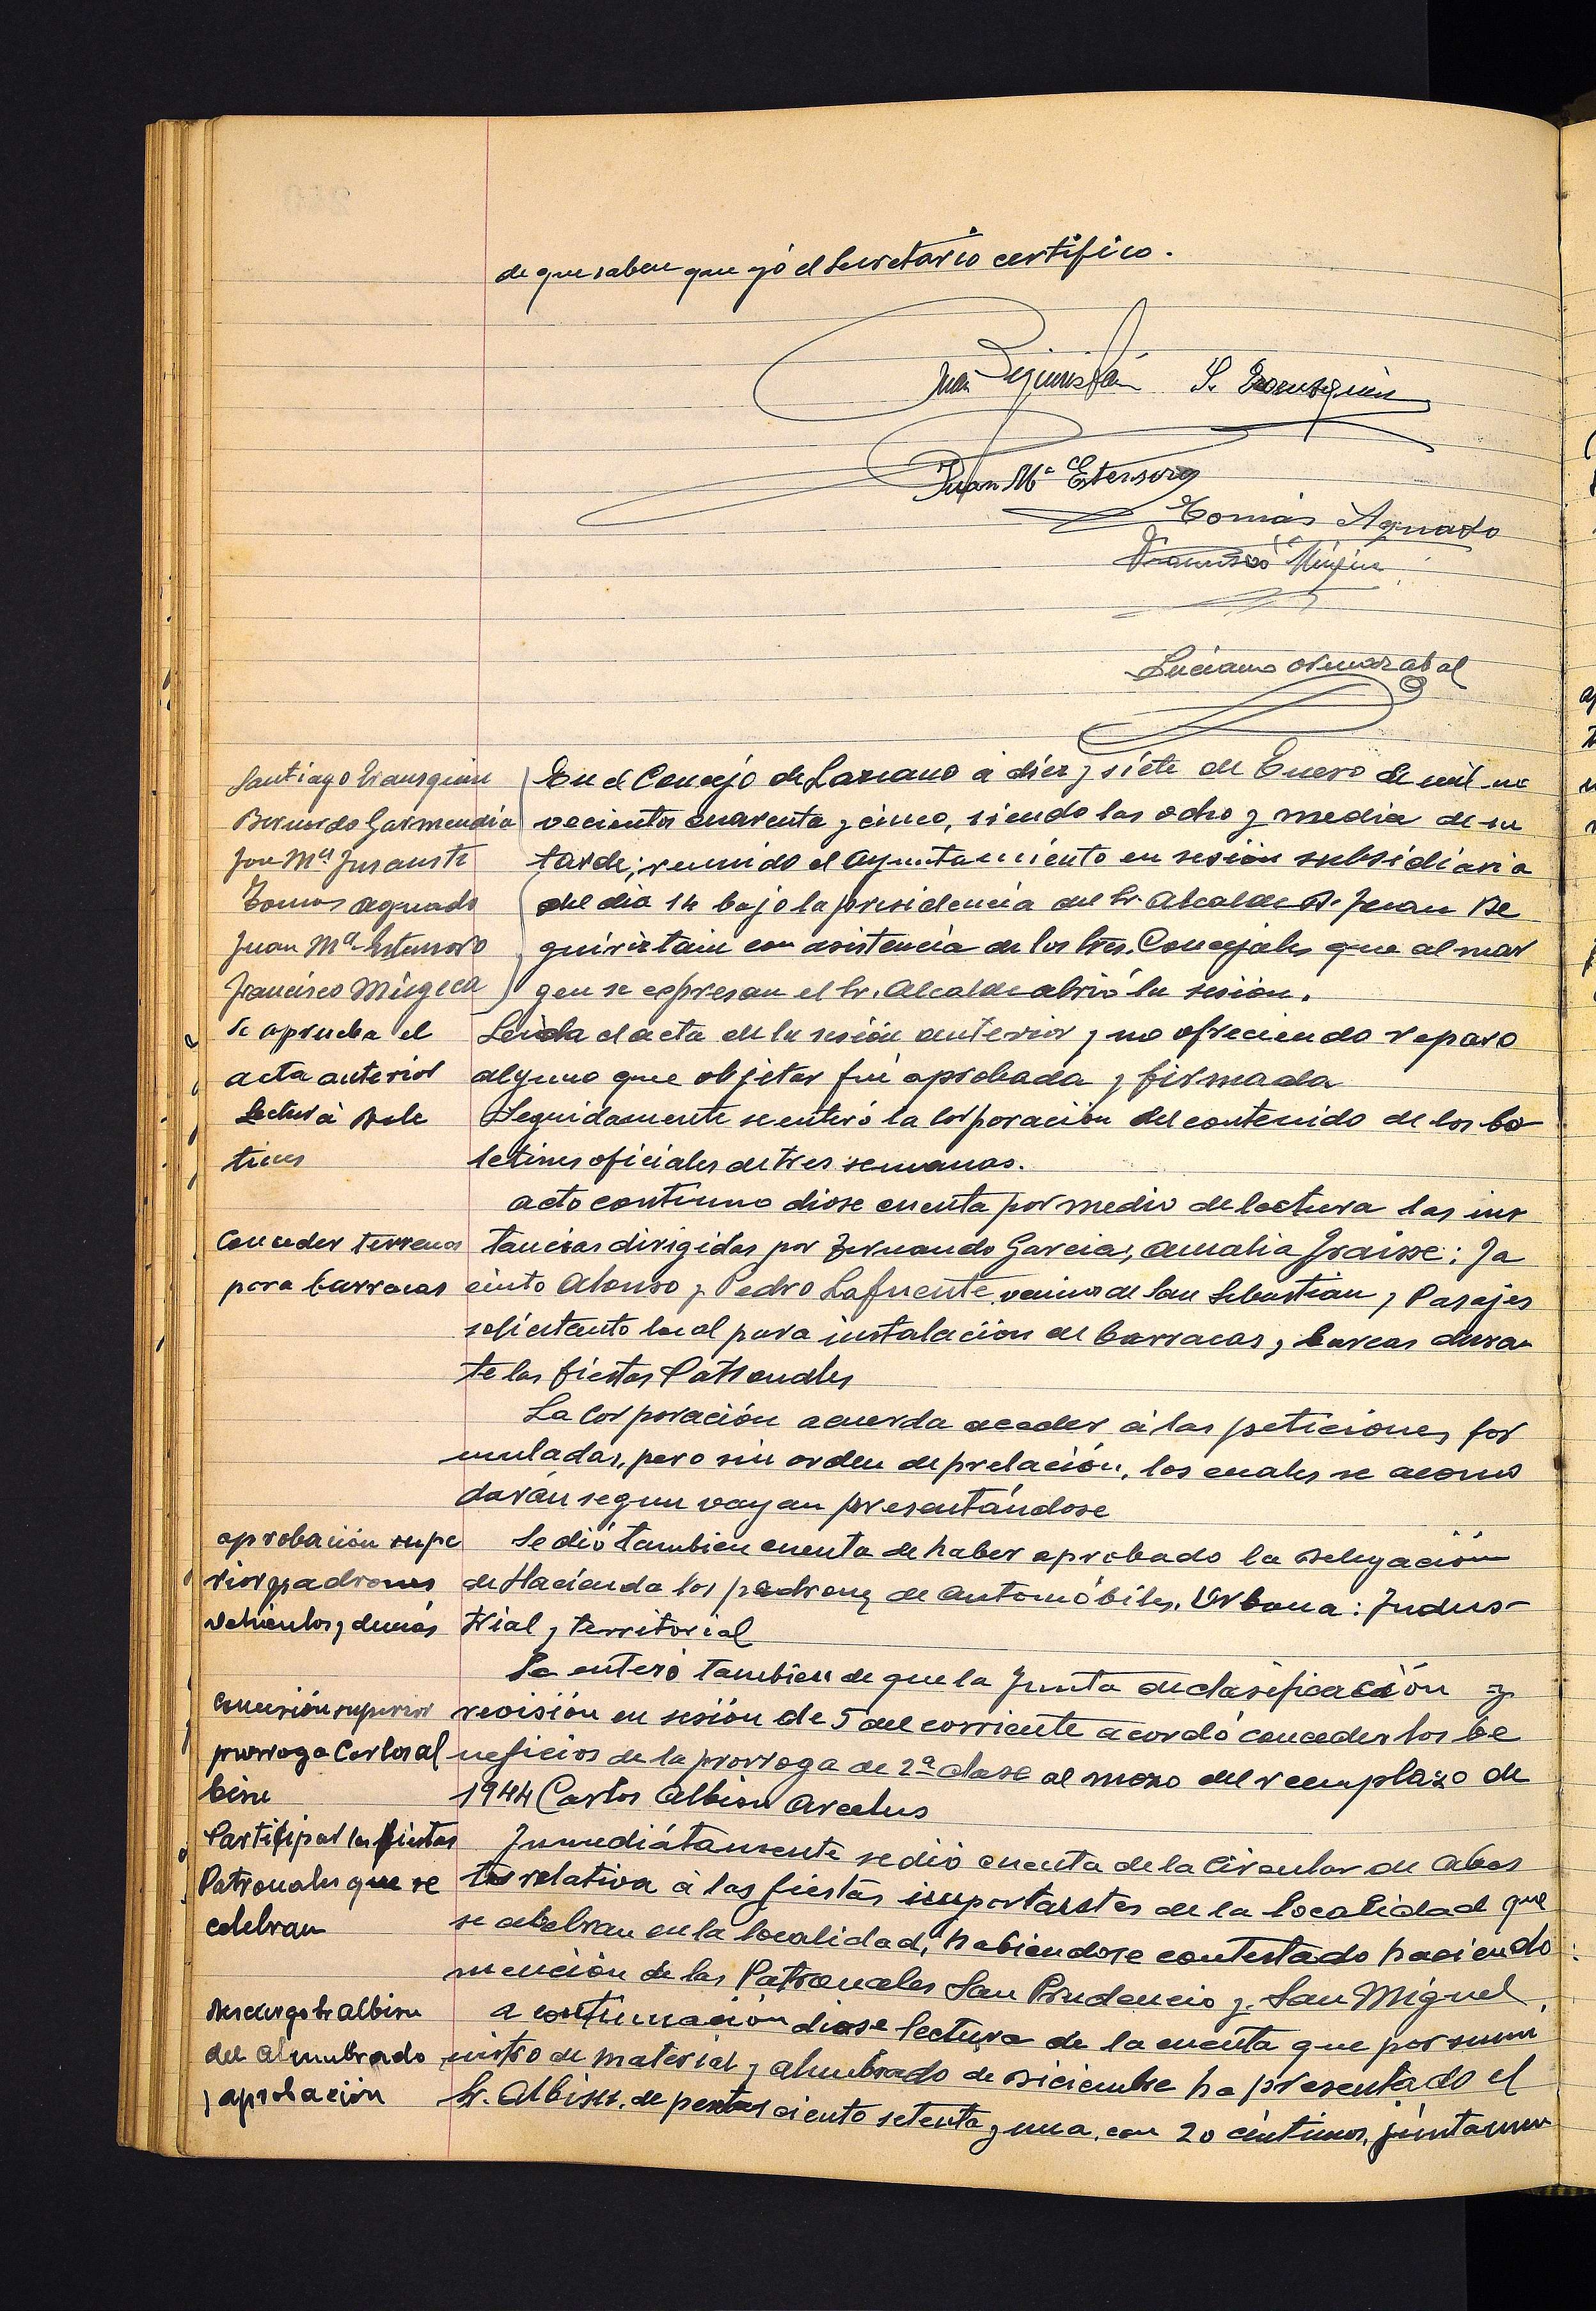 de que saben que yó el Secretario certifico.
Juan Beguiristáin S. Izausquin
Juan Mª Estensoro
Tomás Aguado
Francisco Múgica
Luciano
Santiago Irausquin
Bernardo Garmendia
Jose Mª Insausti
Tomas Aguado
Juan Mª Estensoro
Francisco Múgica
En el Concejo de Lazcano á diez y siete de Enero de mil no
vecientos cuarenta y cinco, siendo las ocho y media de su
tarde; reunido el Ayuntamiento en sesión subsidiaria
del dia 14 bajo la presidencia del Sr. Alcalde D. Juan Be
guiristain con asistencia de los Sres. Concejales que al mar
gen se expresan el Sr. Alcalde abrió la sesión.
Se aprueba el
acta anterior
Leida el acta de la sesión anterior y no ofreciendo reparo
alguno que objetar fué aprobada y firmada
Lectura Bole
tines
Seguidamente se enteró la Corporación del contenido de los bo
letines oficiales de tres semanas.
Acto continuo diose cuenta por medio de lectura las ins
Conceder terrenos
para barracas
tancias dirigidas por Fernando Garcia, Amalia Fraisse: Ja
cinto Alonso y Pedro Lafuente, vecinos de San Sebastian y Pasajes
solicitanto local para instalación de barracas y barcas duran
te las fiestas Patronales
La Corporación acuerda acceder á las peticiones for
muladas, pero sin orden de prelación, los cuales se acomo
darán segun vayan presentándose
aprobación supe
rior padrones
vehiculos y demás
Se dió tambien cuenta de haber aprobado la Delegación
de Hacienda los padrones de automóbiles, Urbana: Indus-
trial y territorial
Se enteró tambien de que la Junta de clasificación y
Concesión superior
prorroga Carlos Al
bisu
revisión en sesión de 5 del corriente acordó conceder los be
neficios de la prorroga de 2ª clase al mozo del reemplazo de
1944 Carlos Albisu Arcelus
Participar las fiestas
Patronales que se
celebran
Inmediátamente se dió cuenta de la Circular de Abas
tos relativa á las fiestas importantes de la localidad que
se celebran en la localidad, habiendose contestado haciendo
mención de las Patronales San Prudencio y San Miguel.
Descargo Sr Albisu
del alumbrado
y aprobación
A continuación diose lectura de la cuenta que por sumi
nistro de material y alumbrado de diciembre ha presentado el
Sr. Albisu, de pesetas ciento setenta y una, con 20 céntimos, juntamen